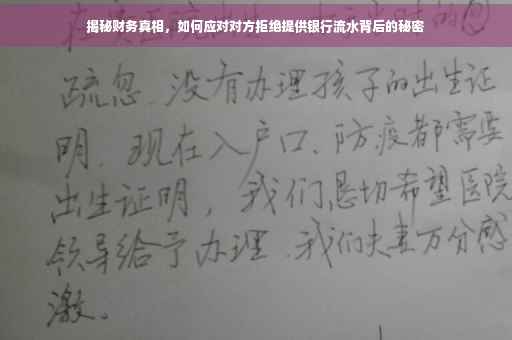 揭秘财务真相，如何应对对方拒绝提供银行流水背后的秘密
疏忽、没有办理孩子的出生证
明、现在入户口、防疫都需要
出生证明，我们恳切希望医院
领导给予办理、我们夫妻万分感
激。